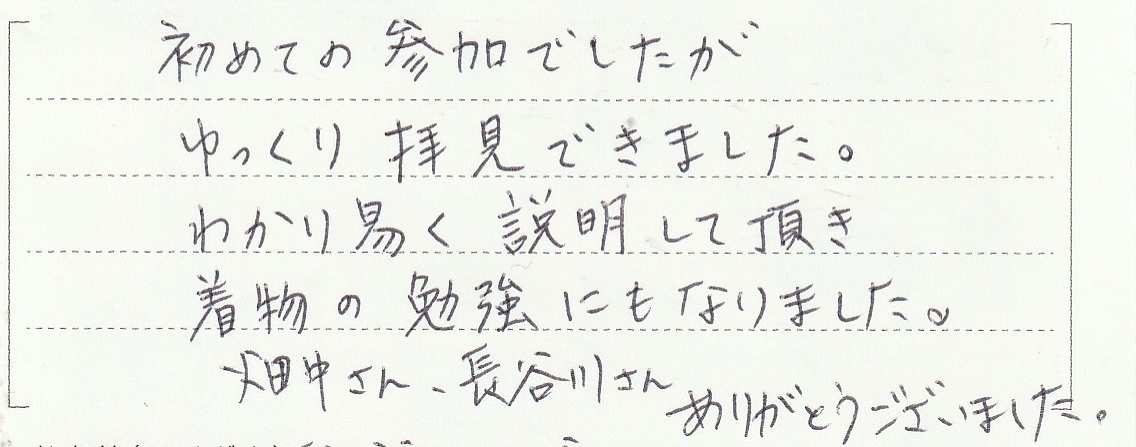 初めての参加でしたが
ゆっくり拝見できました。
わかり易く説明して頂き
着物の勉強にもなりました。
畑中さん、長谷川さん
ありがとうございました。